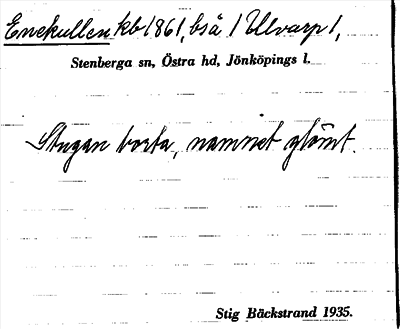 Enekullen kb 1861, bså 1 Ulvarp 1,
Stenberga sn, Östra hd, Jönköpings l.
Stugan borta, namnet glömt.
Stig Bäckstrand 1935.